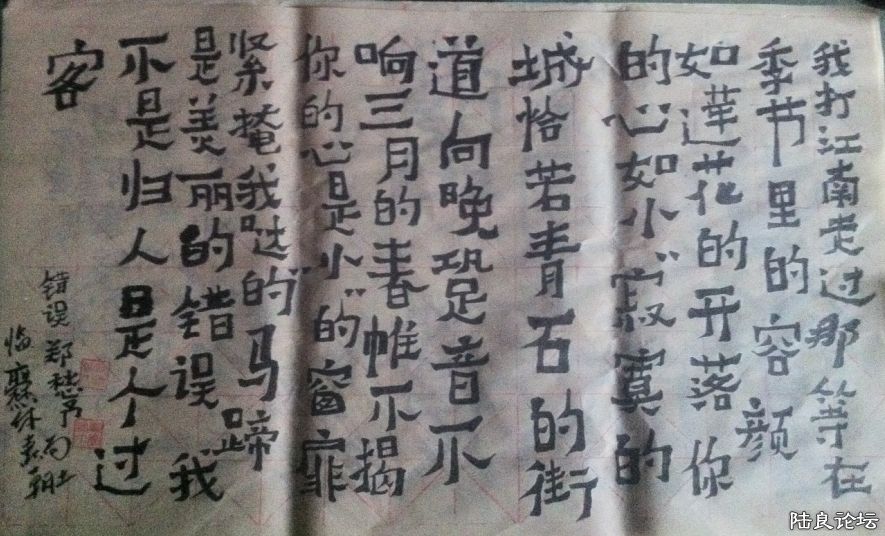 我打江南走过那等在
季节里的容颜
如莲花的开落你
的心如小〃寂寞的
城恰若青石的街
道向晚跫音不
响三月的春帷不揭
你的心是小〃的窗扉
紧掩我哒的马蹄
是美丽的错误我
不是归人是个过
客
错误郑愁予句
临爨体
陆良论坛